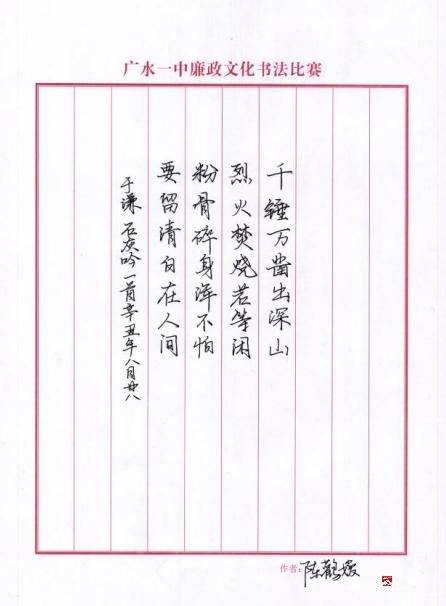 广水一中廉政文化书法比赛
千锤万凿出深山
烈火焚烧若等闲
粉骨碎身浑不怕
要留清白在人间
于谦石灰吟一首辛丑年八月廿八
作者：陈